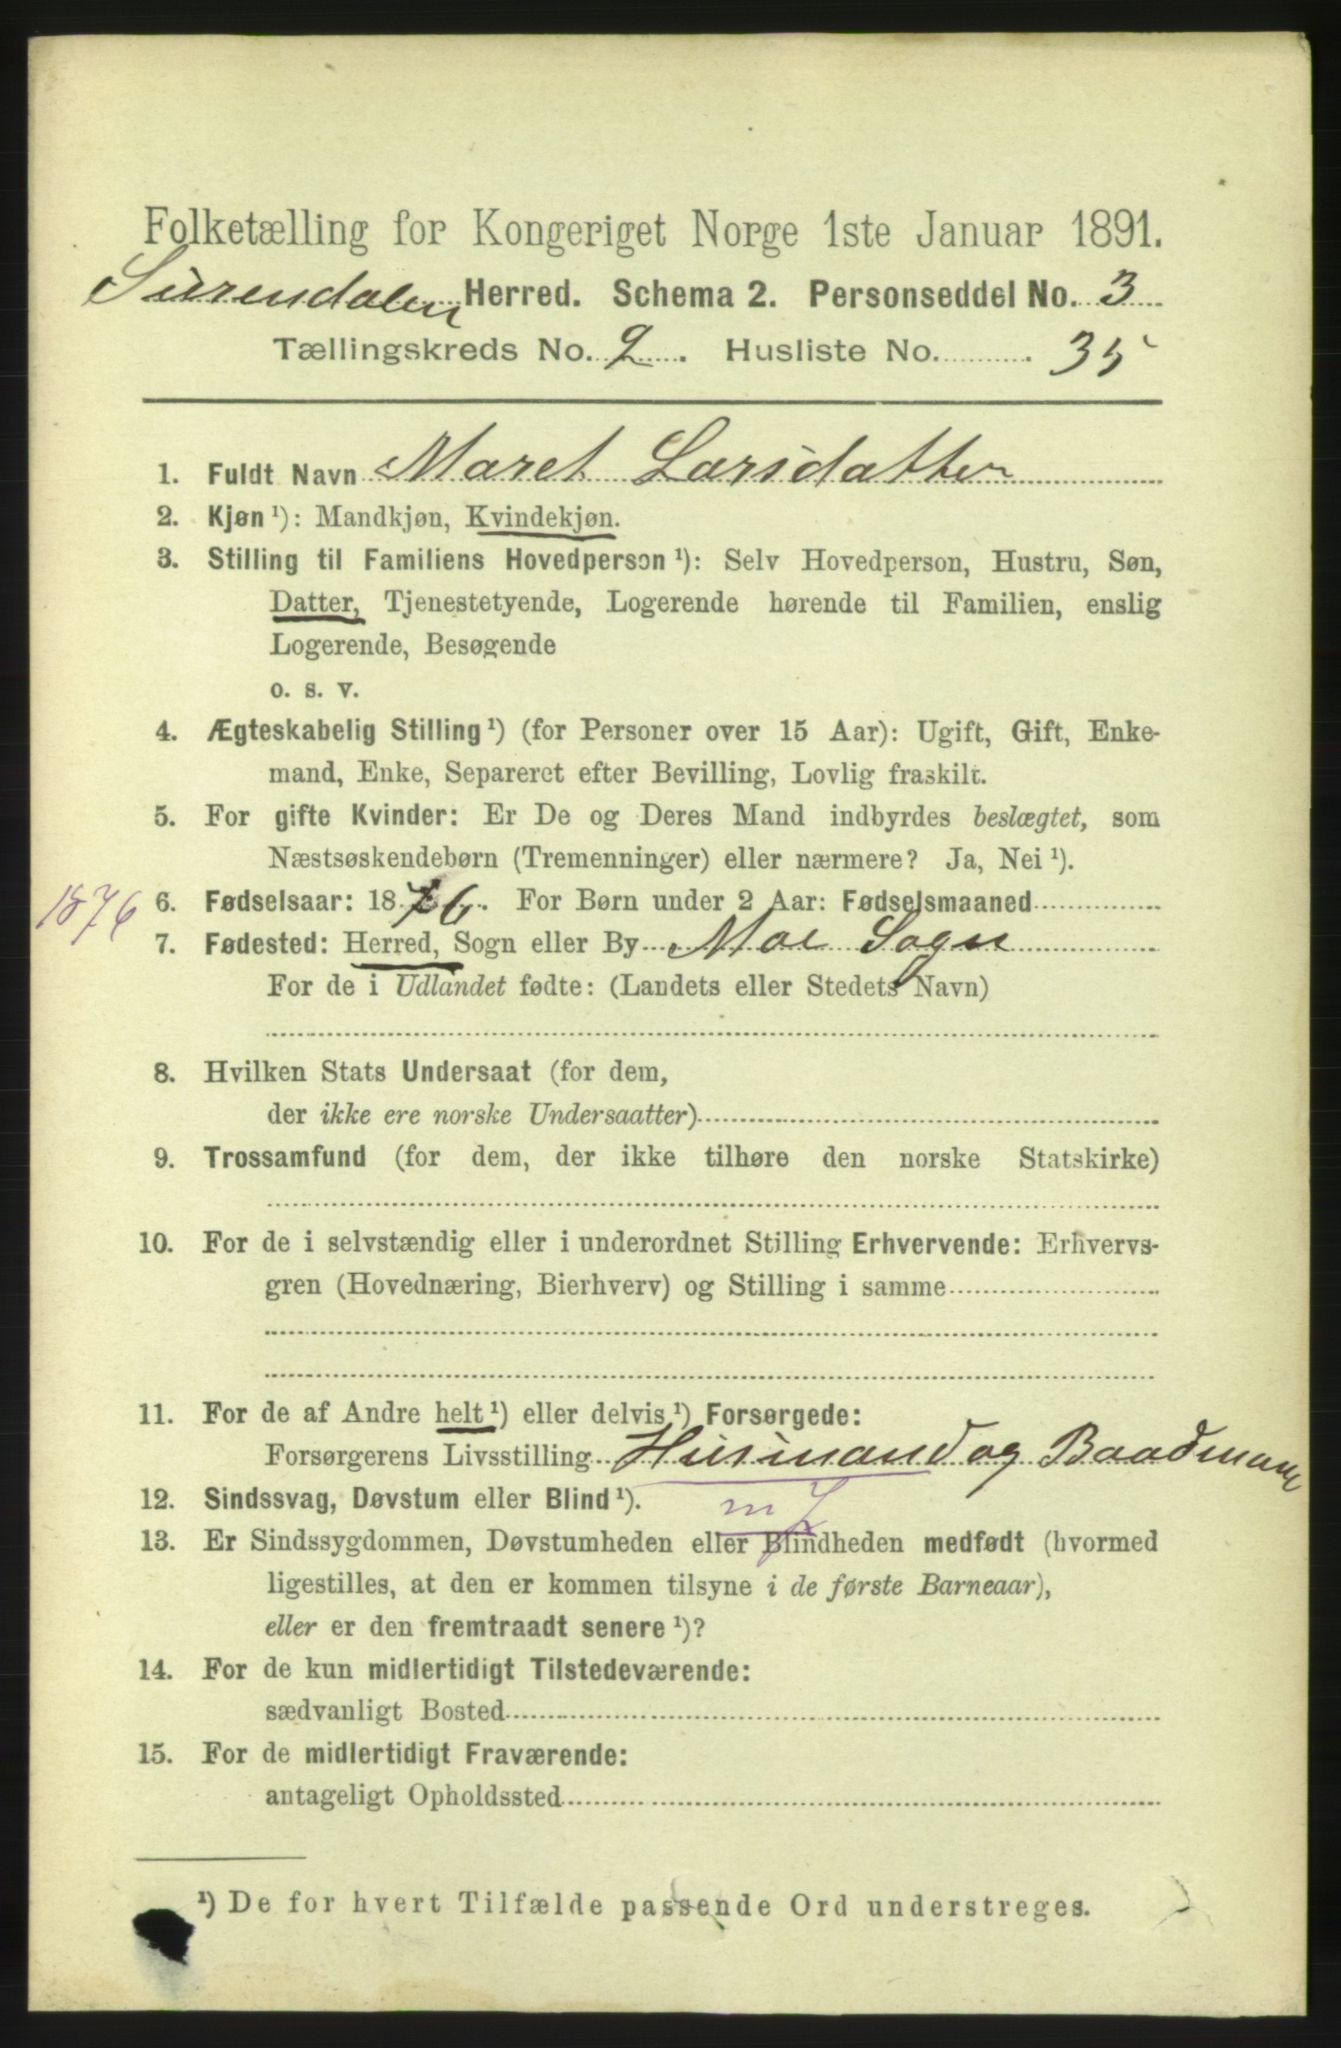 Folketælling for Kongeriget Norge 1ste Januar 1891.
Surendalen Herred. Schema 2. Personseddel No. 3
Tællingskreds No. 2. Husliste No. 35
1. Fuldt Navn Maret Larsdatter
2. Kjøn ¹): Mandkjøn, Kvindekjøn.
3. Stilling til Familiens Hovedperson ¹): Selv Hovedperson, Hustru, Søn,
Datter, Tjenestetyende, Logerende hørende til Familien, enslig
Logerende, Besøgende
o. s. v.
4. Ægteskabelig Stilling ¹) (for Personer over 15 Aar): Ugift, Gift, Enke-
mand, Enke, Separeret efter Bevilling, Lovlig fraskilt.
5. For gifte Kvinder: Er De og Deres Mand indbyrdes beslægtet, som
Næstsøskendebørn (Tremenninger) eller nærmere? Ja, Nei ¹).
1876 6. Fødselsaar: 1876. For Børn under 2 Aar: Fødselsmaaned
7. Fødested: Herred, Sogn eller By Moe Sogn
For de i Udlandet fødte: (Landets eller Stedets Navn)
8. Hvilken Stats Undersaat (for dem,
der ikke ere norske Undersaatter)
9. Trossamfund (for dem, der ikke tilhøre den norske Statskirke)
10. For de i selvstændig eller i underordnet Stilling Erhvervende: Erhvervs-
gren (Hovednæring, Bierhverv) og Stilling i samme
11. For de af Andre helt ¹) eller delvis ¹) Forsørgede:
Forsørgerens Livsstilling Husmand og Baadmann
12. Sindssvag, Døvstum eller Blind ¹).
13. Er Sindssygdommen, Døvstumheden eller Blindheden medfødt (hvormed
ligestilles, at den er kommen tilsyne i de første Barneaar),
eller er den fremtraadt senere ¹)?
14. For de kun midlertidigt Tilstedeværende:
sædvanligt Bosted
15. For de midlertidigt Fraværende:
antageligt Opholdssted
¹) De for hvert Tilfælde passende Ord understreges.